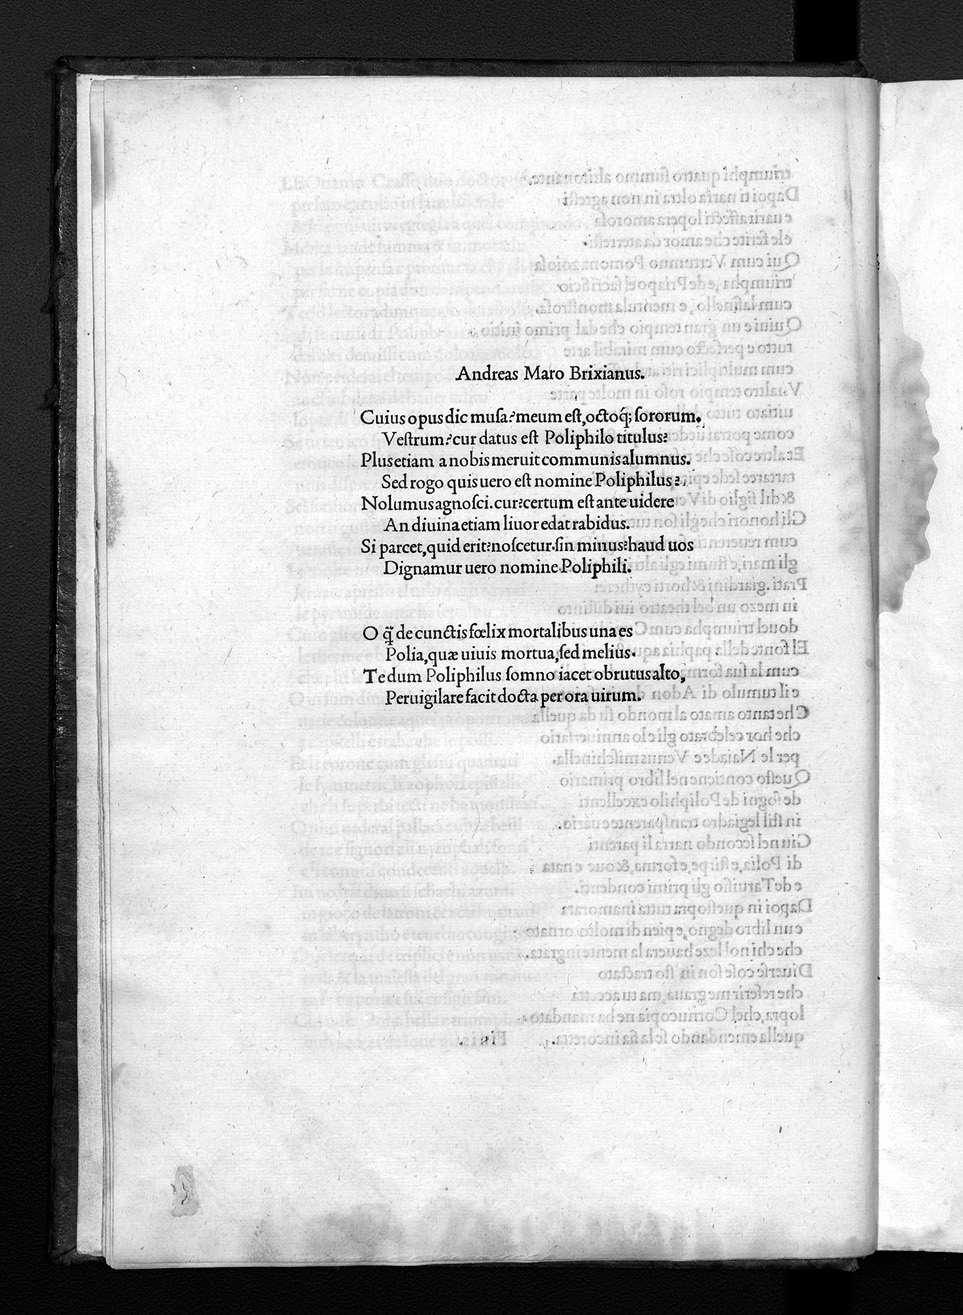 Andreas Maro Brixianus.
Cuius opus dic musa?meum eſt,octoq; ſororum.
Veſtrum?cur datus eſt Poliphilo titulus?
Plus etiam a nobis meruit communis alumnus.
Sed rogo quis uero eſt nomine Poliphilus?
Nolumus agnoſci.cur?certum eſt ante uidere
An diuina etiam liuor edat rabidus.
Si parcet,quid erit?noſcetur.ſin minus?haud uos
Dignamur uero nomine Poliphili.
O q̃ de cunctis fœlix mortalibus una es
Polia,quæ uiuis mortua,ſed melius.
Te dum Poliphilus ſomno iacet obrutus alto,
Peruigilare facit docta per ora uirum.